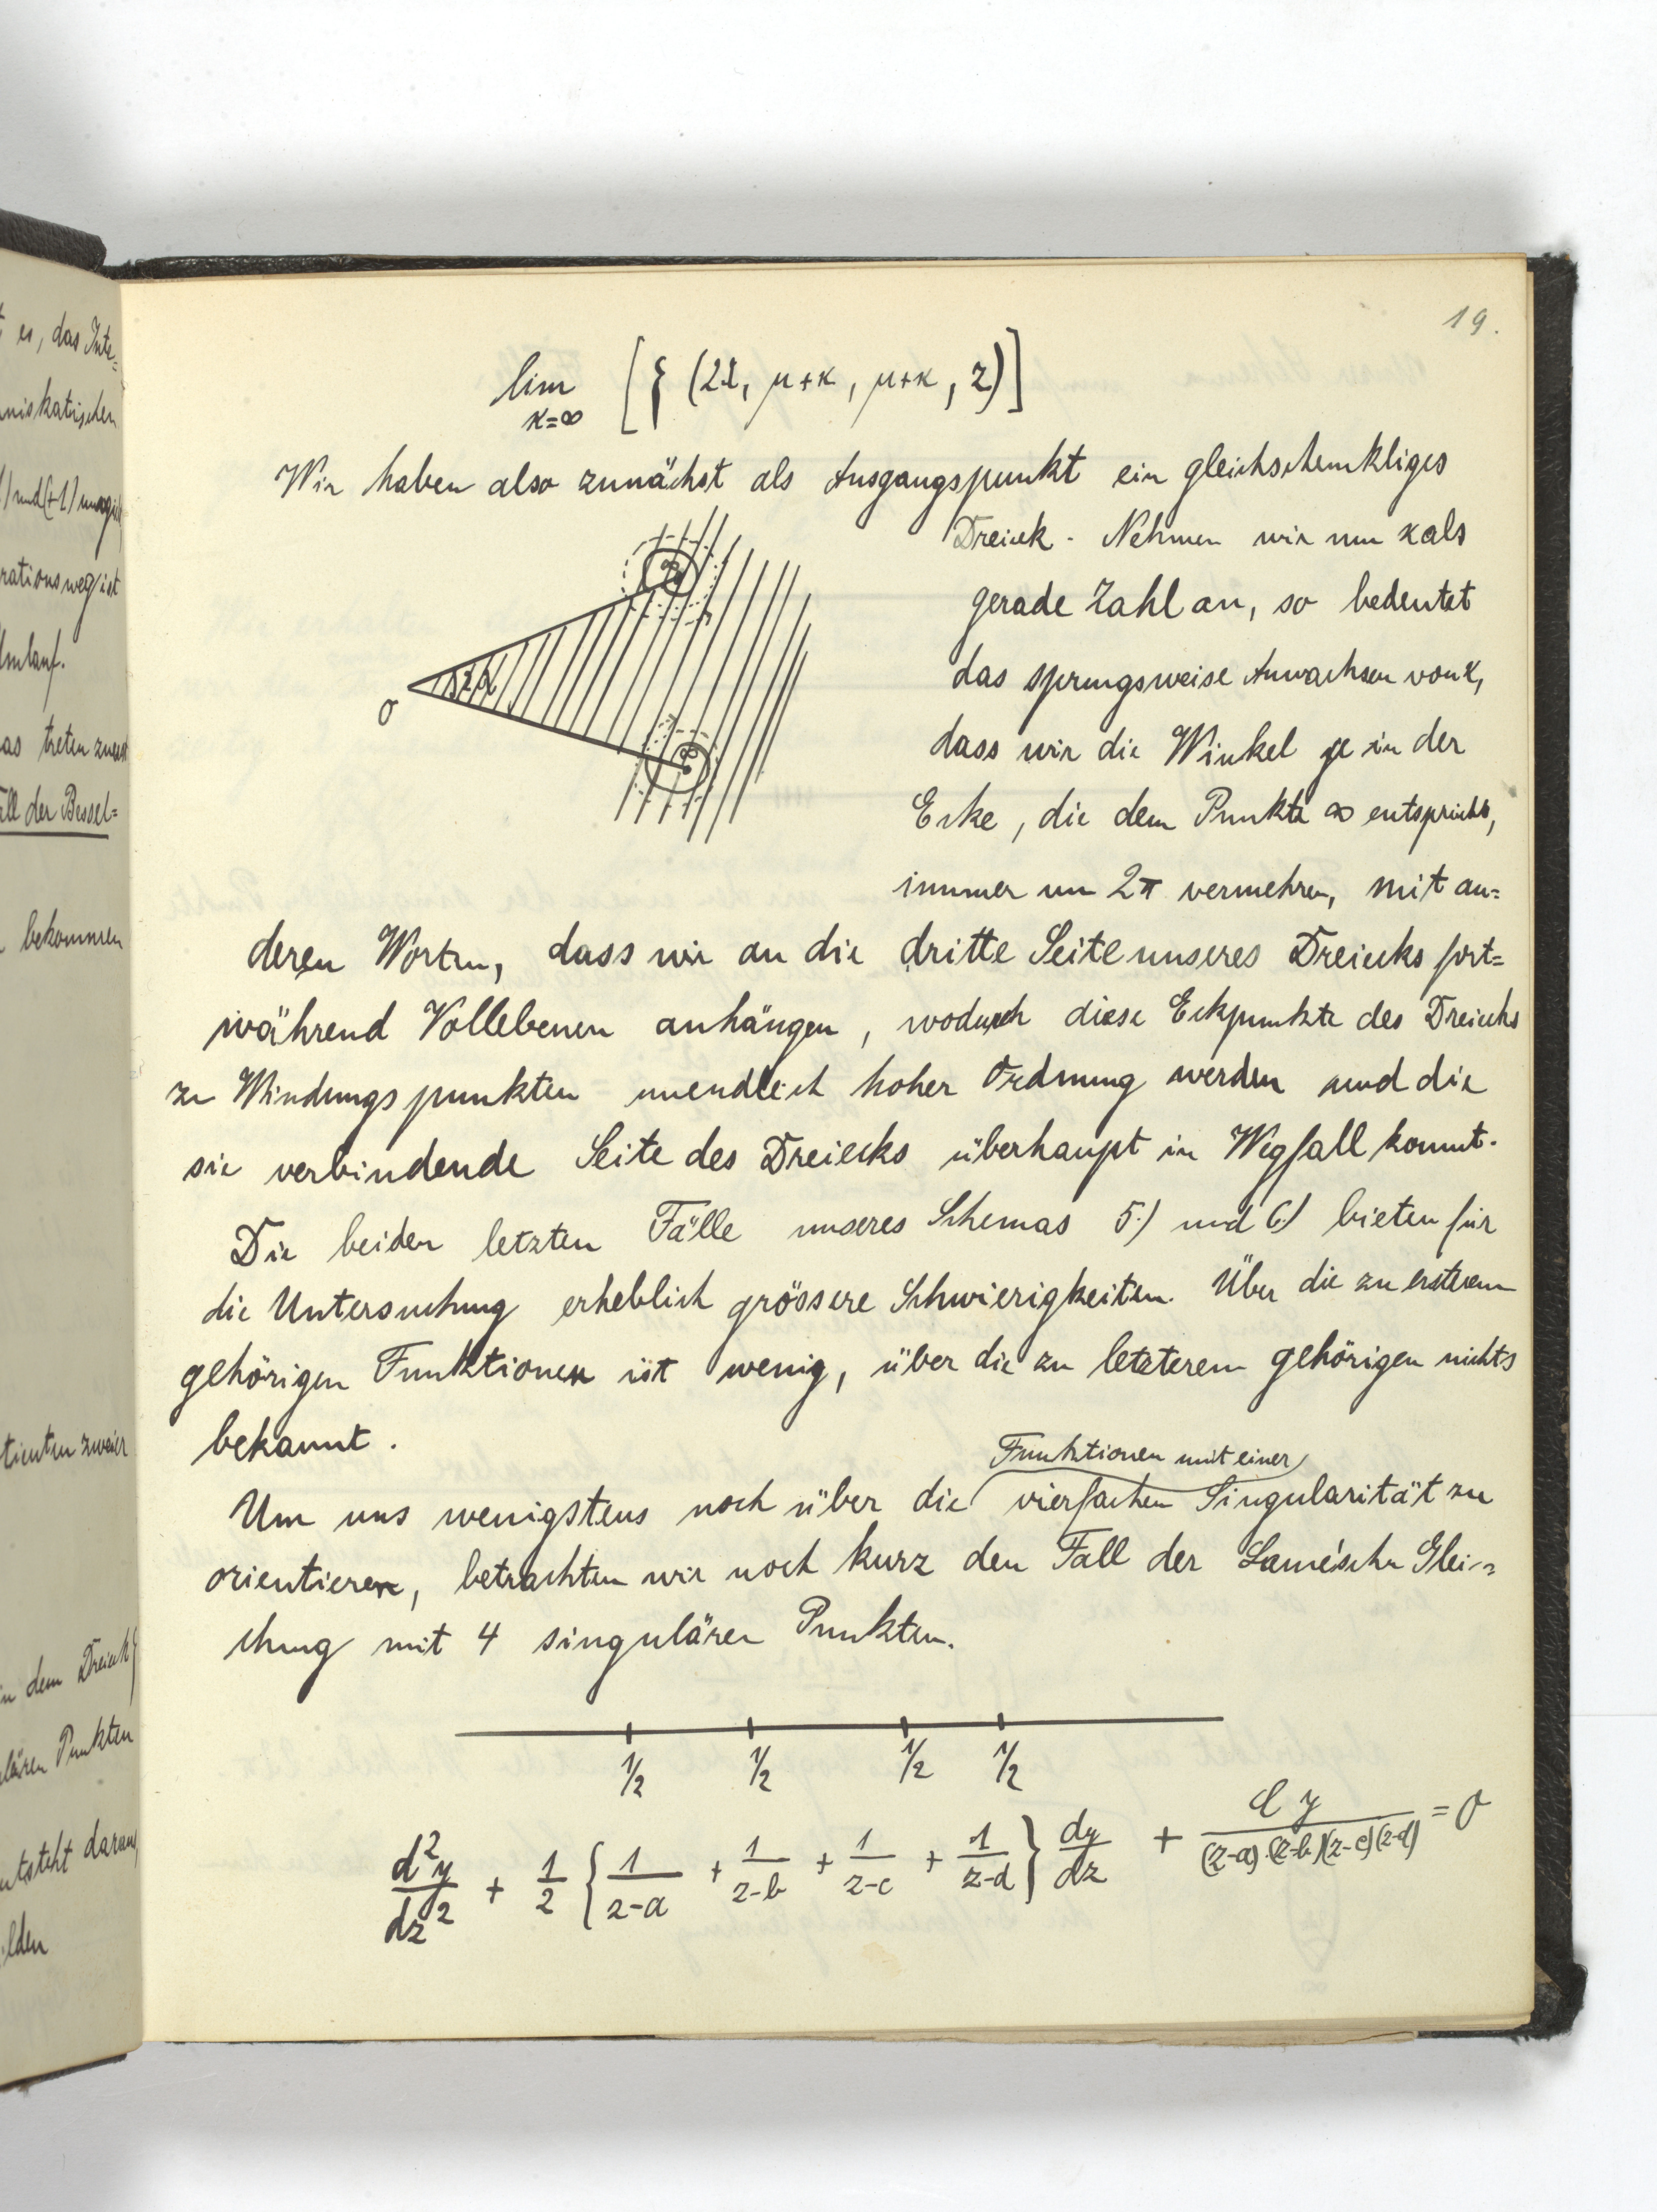 19.
lim [ { (2λ, μ+κ, μ+κ, z) ]
κ=∞
Wir haben also zunächst als Ausgangspunkt ein gleichschenkliges
Dreieck. Nehmen wir nun κ als
gerade Zahl an, so bedeutet
das sprungsweise Anwachsen von κ,
dass wir die Winkel je in der
Ecke, die dem Punkte ∞ entspricht,
immer um 2π vermehren, mit an=
deren Worten, dass wir an die dritte Seite unseres Dreiecks fort=
während Vollebenen anhängen, wodurch diese Eckpunkte des Dreiecks
zu Windungspunkten unendlich hoher Ordnung werden und die
sie verbindende Seite des Dreiecks überhaupt in Wegfall kommt.
Die beiden letzten Fälle unseres Schemas 5.) und 6.) bieten für
die Untersuchung erheblich grössere Schwierigkeiten. Über die zu ersterem
gehörigen Funktionen ist wenig, über die zu letzterem gehörigen nichts
bekannt.
Funktionen mit einer
Um uns wenigstens noch über die vierfachen Singularität zu
orientieren, betrachten wir noch kurz den Fall der Lamé'schen Glei=
chung mit 4 singulären Punkten.
1/2 1/2 1/2 1/2
d²y/dz² + 1/2 { 1/(z-a) + 1/(z-b) + 1/(z-c) + 1/(z-d) } dy/dz + Cy/((z-a)·(z-b)(z-c)(z-d)) = 0
0
∞
∞
es, das Inte=
niskatischen
rationsweg ist
Umlauf.
as treten zuerst
Fall der Bessel=
bekommen
tienten zweier
in dem Dreieck
ulären Punkten
entsteht daraus
ilden